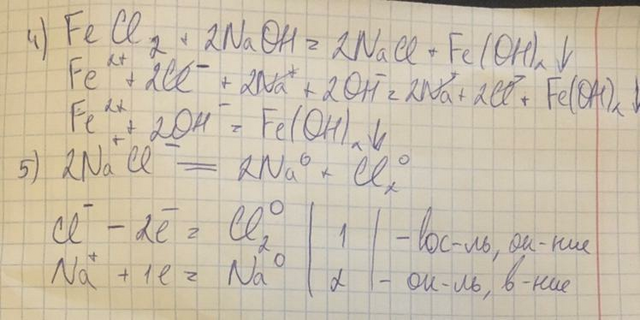 4) FeCl₂ + 2NaOH = 2NaCl + Fe(OH)₂↓
Fe²⁺ + 2Cl⁻ + 2Na⁺ + 2OH⁻ = 2Na⁺ + 2Cl⁻ + Fe(OH)₂↓
Fe²⁺ + 2OH⁻ = Fe(OH)₂↓
5) 2Na⁺Cl⁻ = 2Na⁰ + Cl₂⁰
Cl⁻ - 2e⁻ = Cl₂⁰ | 1 | - вос-ль, ок-ние
Na⁺ + 1e = Na⁰ | 2 | - ок-ль, в-ние